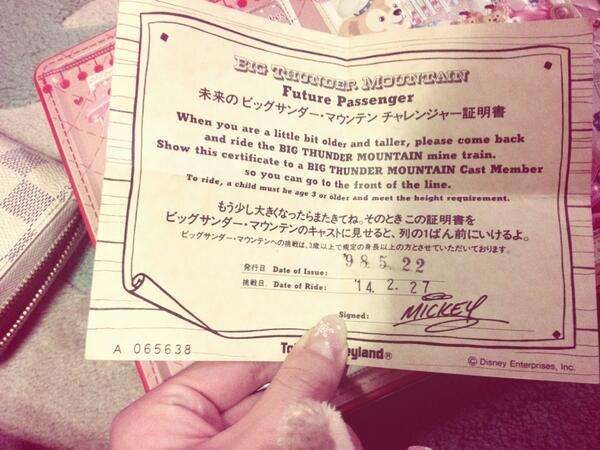 BIG THUNDER MOUNTAIN
Future Passenger
未来のビッグサンダー・マウンテン チャレンジャー証明書
When you are a little bit older and taller, please come back
and ride the BIG THUNDER MOUNTAIN mine train.
Show this certificate to a BIG THUNDER MOUNTAIN Cast Member
so you can go to the front of the line.
To ride, a child must be age 3 or older and meet the height requirement.
もう少し大きくなったらまたきてね。そのとき この証明書を
ビッグサンダー・マウンテンのキャストに見せると、列の1ばん前にいけるよ。
ビッグサンダー・マウンテンへの挑戦は、3歳以上で規定の身長以上の方とさせていただいております。
発行日 Date of Issue: '98.5.22
挑戦日 Date of Ride: '14.2.27
Signed: MICKEY
A 065638
© Disney Enterprises, Inc.